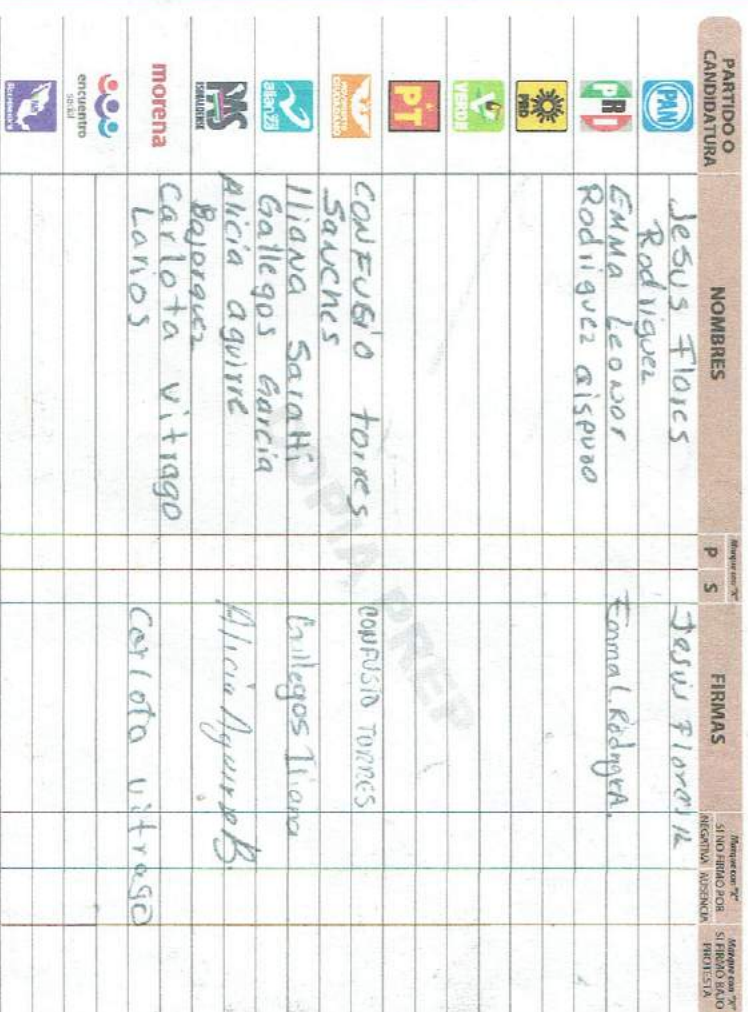 PARTIDO O
CANDIDATURA
NOMBRES
Marque con "X"
P S
FIRMAS
Marque con "X"
SI NO FIRMÓ POR
NEGATIVA AUSENCIA
Marque con "X"
SI FIRMÓ BAJO
PROTESTA
PAN
Jesus Flores
Rodriiguez
Jesus Flores R
PRI
Emma Leonor
Rodriiguez aispuro
Emma L. Rodngz A.
PRD
VERDE
PT
MOVIMIENTO
CIUDADANO
CONFUSIO torres
Sanches
CONFUSIO TORRES
alianza
Iliana Saratti
Gallegos Garcia
Gallegos Iliana
PAS
SINALOENSE
Alicia aguirre
Bojorquez
Alicia Aguirre B.
morena
Carlota vitrago
Larios
Carlota vitrago
encuentro
social
COPIA PREP